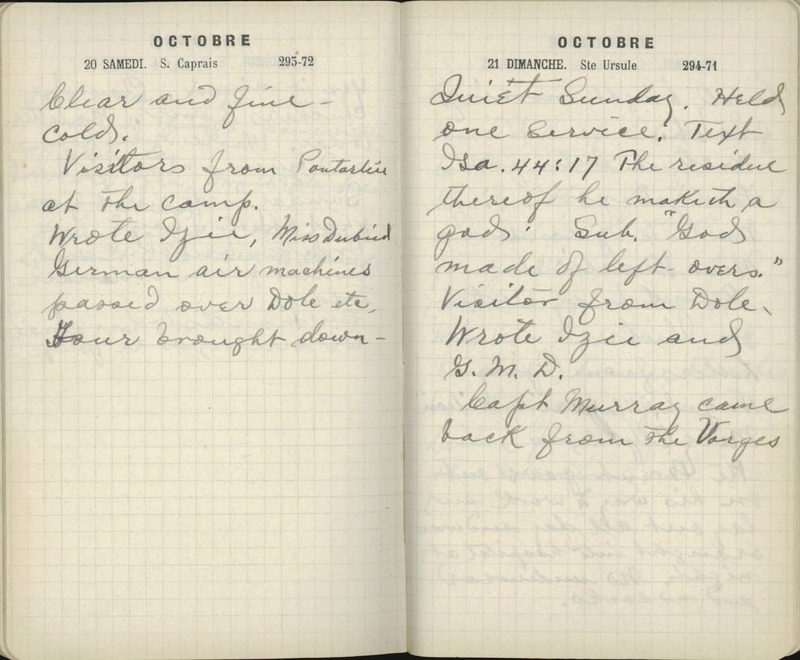 OCTOBRE
20 SAMEDI. S. Caprais 293-72
Clear and fine -
cold.
Visitors from Pontarlier
at the camp.
Wrote Izie, Miss Dubied
German air machines
passed over Dole etc,
Four brought down -
OCTOBRE
21 DIMANCHE. Ste Ursule 294-71
Quiet Sunday. Held
one service. Text
Isa. 44:17 The residue
thereof he maketh a
god: Sub. "Gods
made of left-overs."
Visitor from Dole.
Wrote Izie and
G. M. D.
Capt Murray came
back from the Vosges